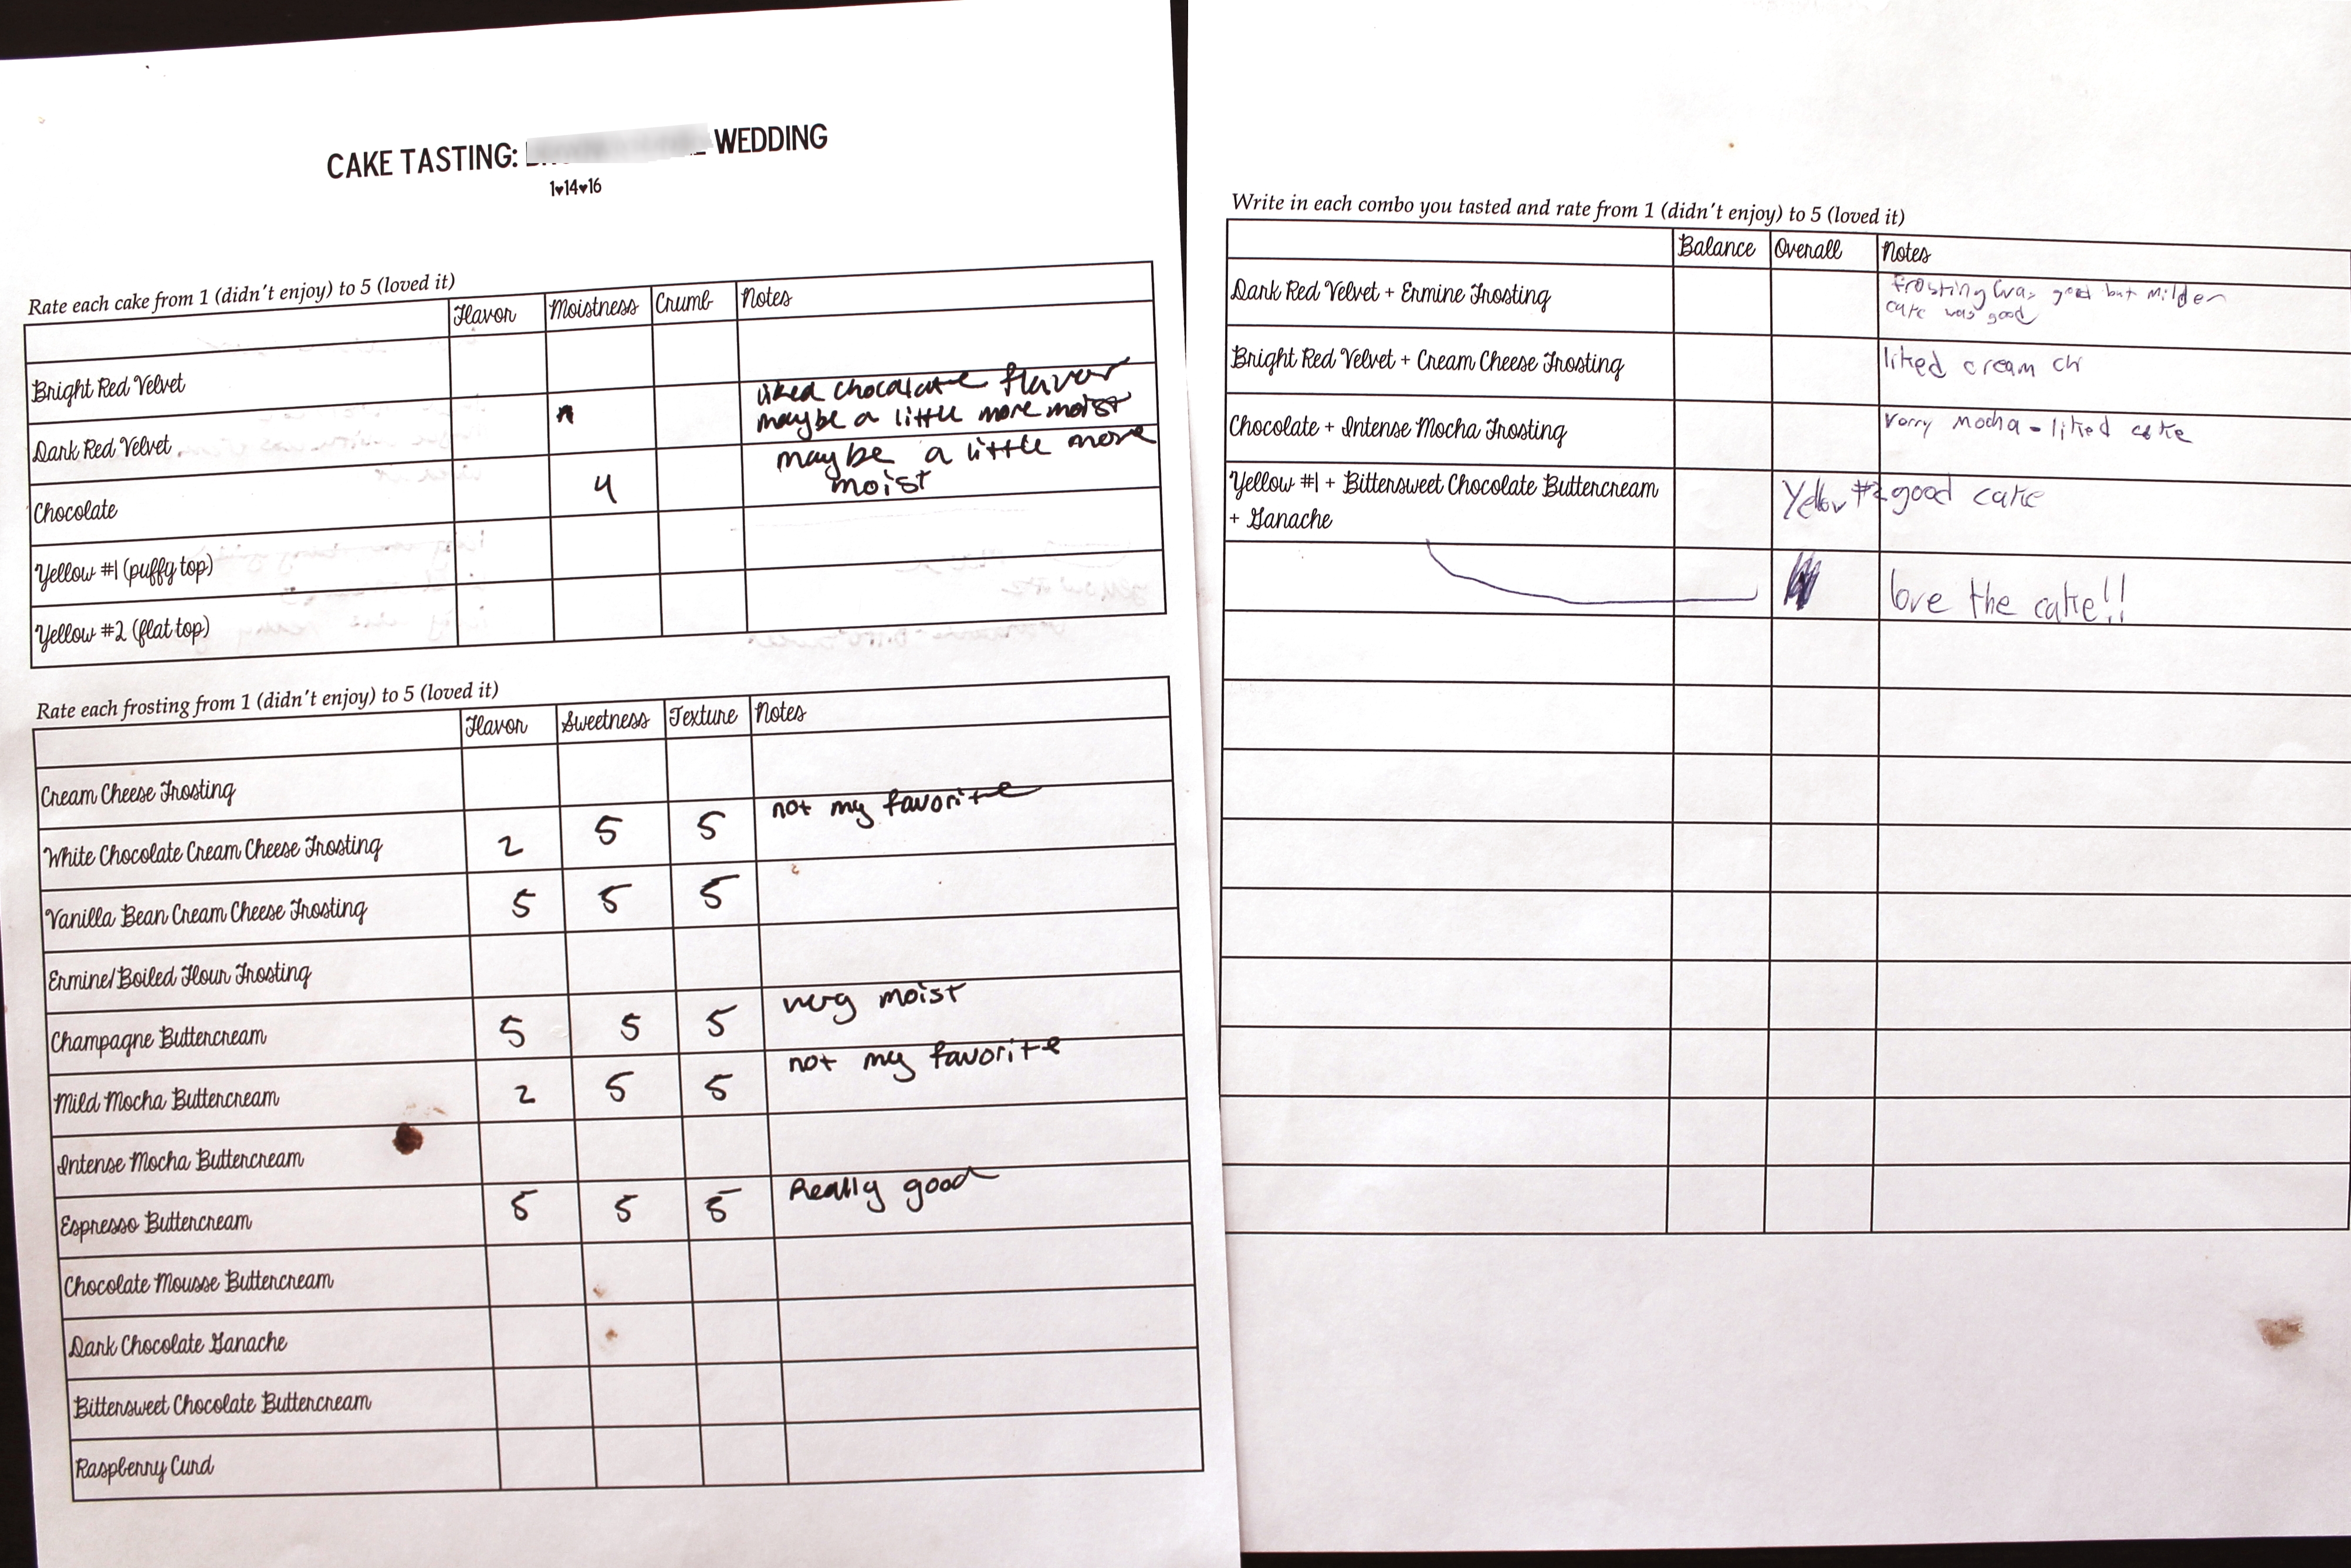 CAKE TASTING: WEDDING
1♥14♥16
Rate each cake from 1 (didn't enjoy) to 5 (loved it)
Flavor Moistness Crumb Notes
Bright Red Velvet
Dark Red Velvet liked chocolate flavor
maybe a little more moist
Chocolate 4 maybe a little more
moist
Yellow #1 (puffy top)
Yellow #2 (flat top)
Rate each frosting from 1 (didn't enjoy) to 5 (loved it)
Flavor Sweetness Texture Notes
Cream Cheese Frosting
White Chocolate Cream Cheese Frosting 2 5 5 not my favorite
Vanilla Bean Cream Cheese Frosting 5 5 5
Ermine/Boiled Flour Frosting
Champagne Buttercream 5 5 5 very moist
Mild Mocha Buttercream 2 5 5 not my favorite
Intense Mocha Buttercream
Espresso Buttercream 5 5 5 Really good
Chocolate Mousse Buttercream
Dark Chocolate Ganache
Bittersweet Chocolate Buttercream
Raspberry Curd
Write in each combo you tasted and rate from 1 (didn't enjoy) to 5 (loved it)
Balance Overall Notes
Dark Red Velvet + Ermine Frosting frosting was good but milder
cake was good
Bright Red Velvet + Cream Cheese Frosting liked cream ch
Chocolate + Intense Mocha Frosting mocha - liked cake
Yellow #1 + Bittersweet Chocolate Buttercream Yellow #2 good cake
+ Ganache
love the cake!!